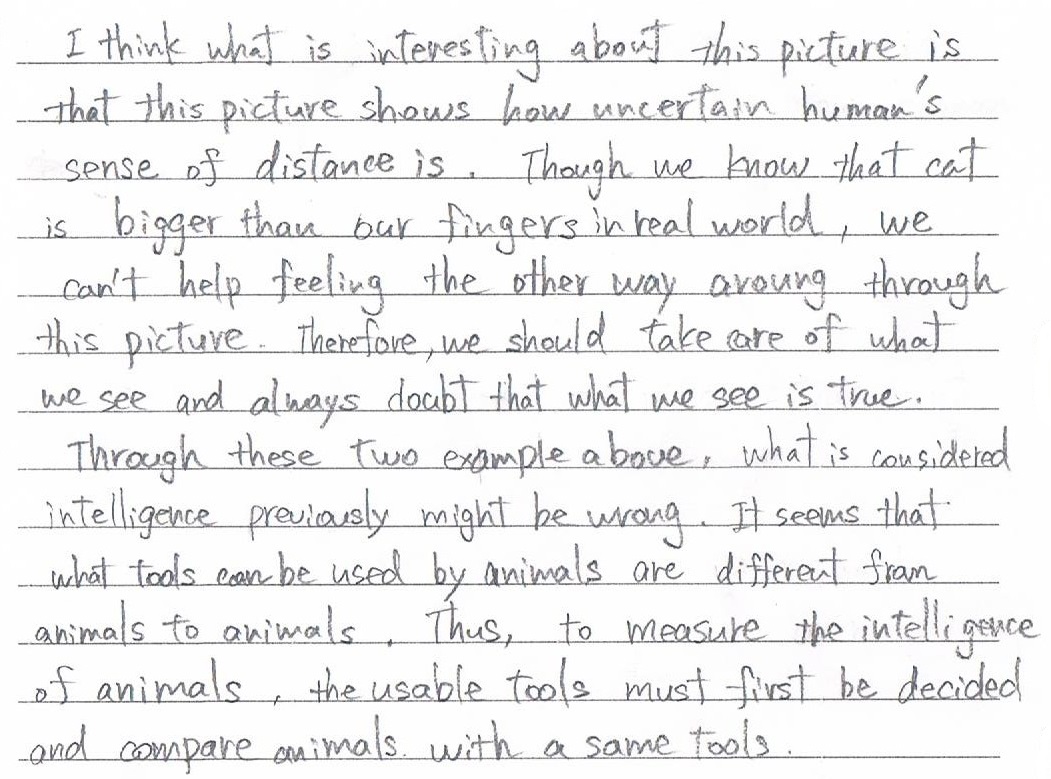 I think what is interesting about this picture is
that this picture shows how uncertain human's
sense of distance is. Though we know that cat
is bigger than our fingers in real world, we
can't help feeling the other way aroung through
this picture. Therefore, we should take care of what
we see and always doubt that what we see is true.
Through these two example above, what is considered
intelligence previously might be wrong. It seems that
what tools can be used by animals are different from
animals to animals. Thus, to measure the intelligence
of animals, the usable tools must first be decided
and compare animals with a same tools.